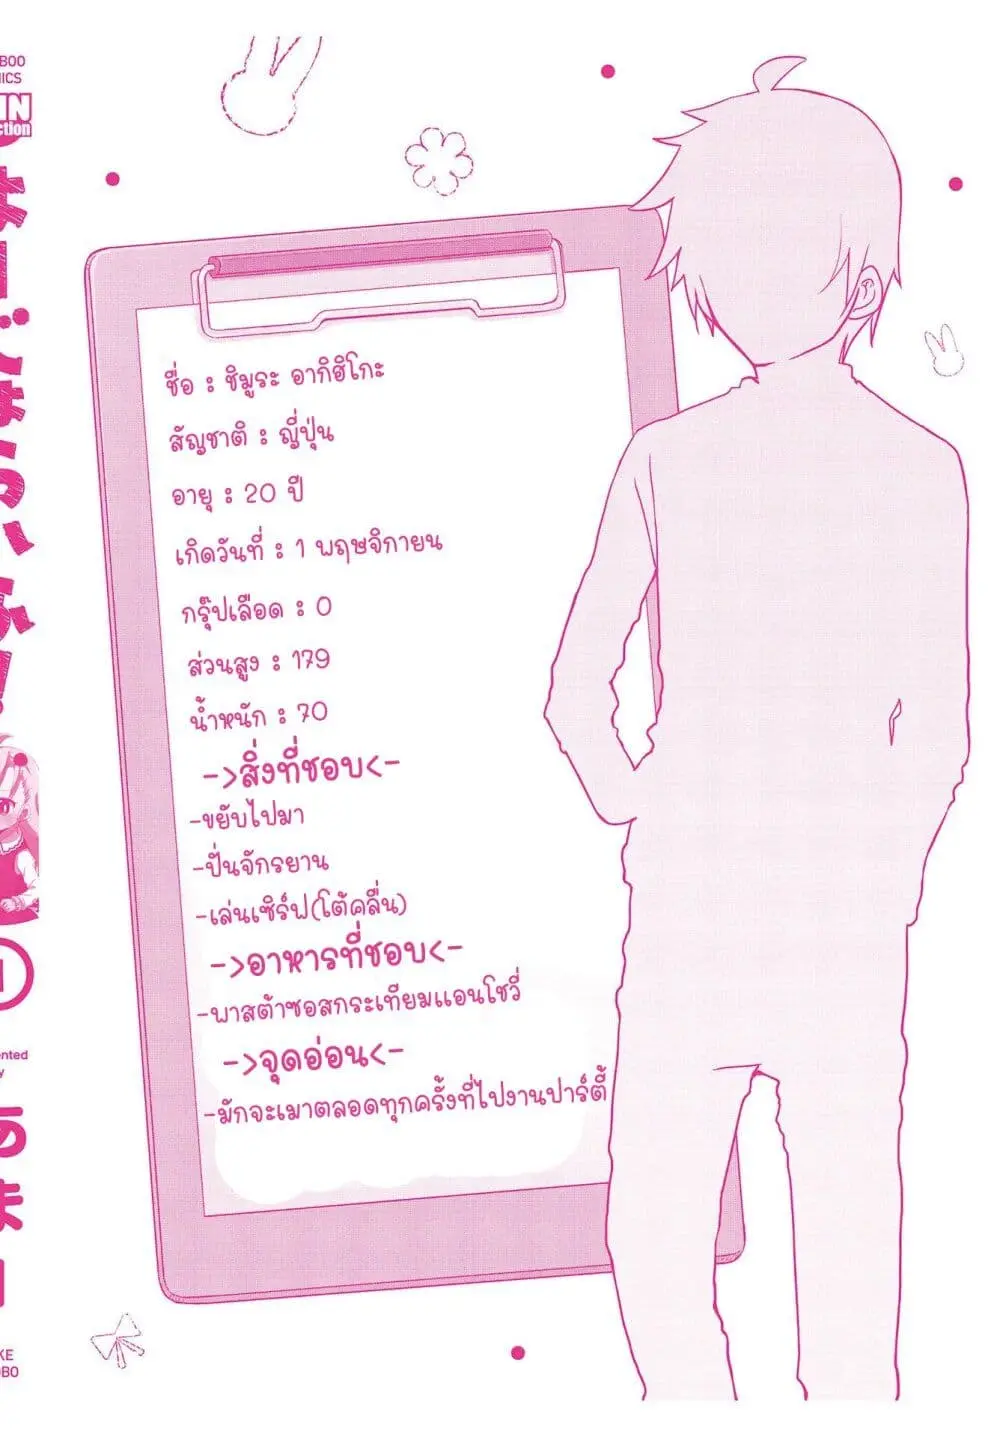 ชื่อ : ชิมูระ อากิฮิโกะ
สัญชาติ : ญี่ปุ่น
อายุ : 20 ปี
เกิดวันที่ : 1 พฤษจิกายน
กรุ๊ปเลือด : O
ส่วนสูง : 179
น้ำหนัก : 70
->สิ่งที่ชอบ<-
-ขยับไปมา
-ปั่นจักรยาน
-เล่นเซิร์ฟ(โต้คลื่น)
->อาหารที่ชอบ<-
-พาสต้าซอสกระเทียมแอนโชวี่
->จุดอ่อน<-
-มักจะเมาตลอดทุกครั้งที่ไปงานปาร์ตี้